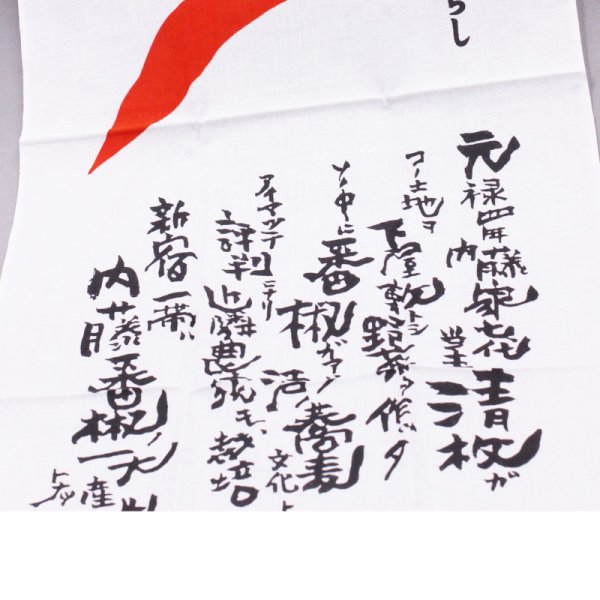 らし
元禄四年内藤家七代当主清枚ガ
コノ土地ヲ
下屋敷トシ野菜ヲ作ッタ
ソノ中ニ番椒ガアリ
江戸ノ蕎麦
文化ト
アイマッテ
評判ニナリ
近隣農家モ栽培
新宿一帯ハ
内藤番椒ノ大
産